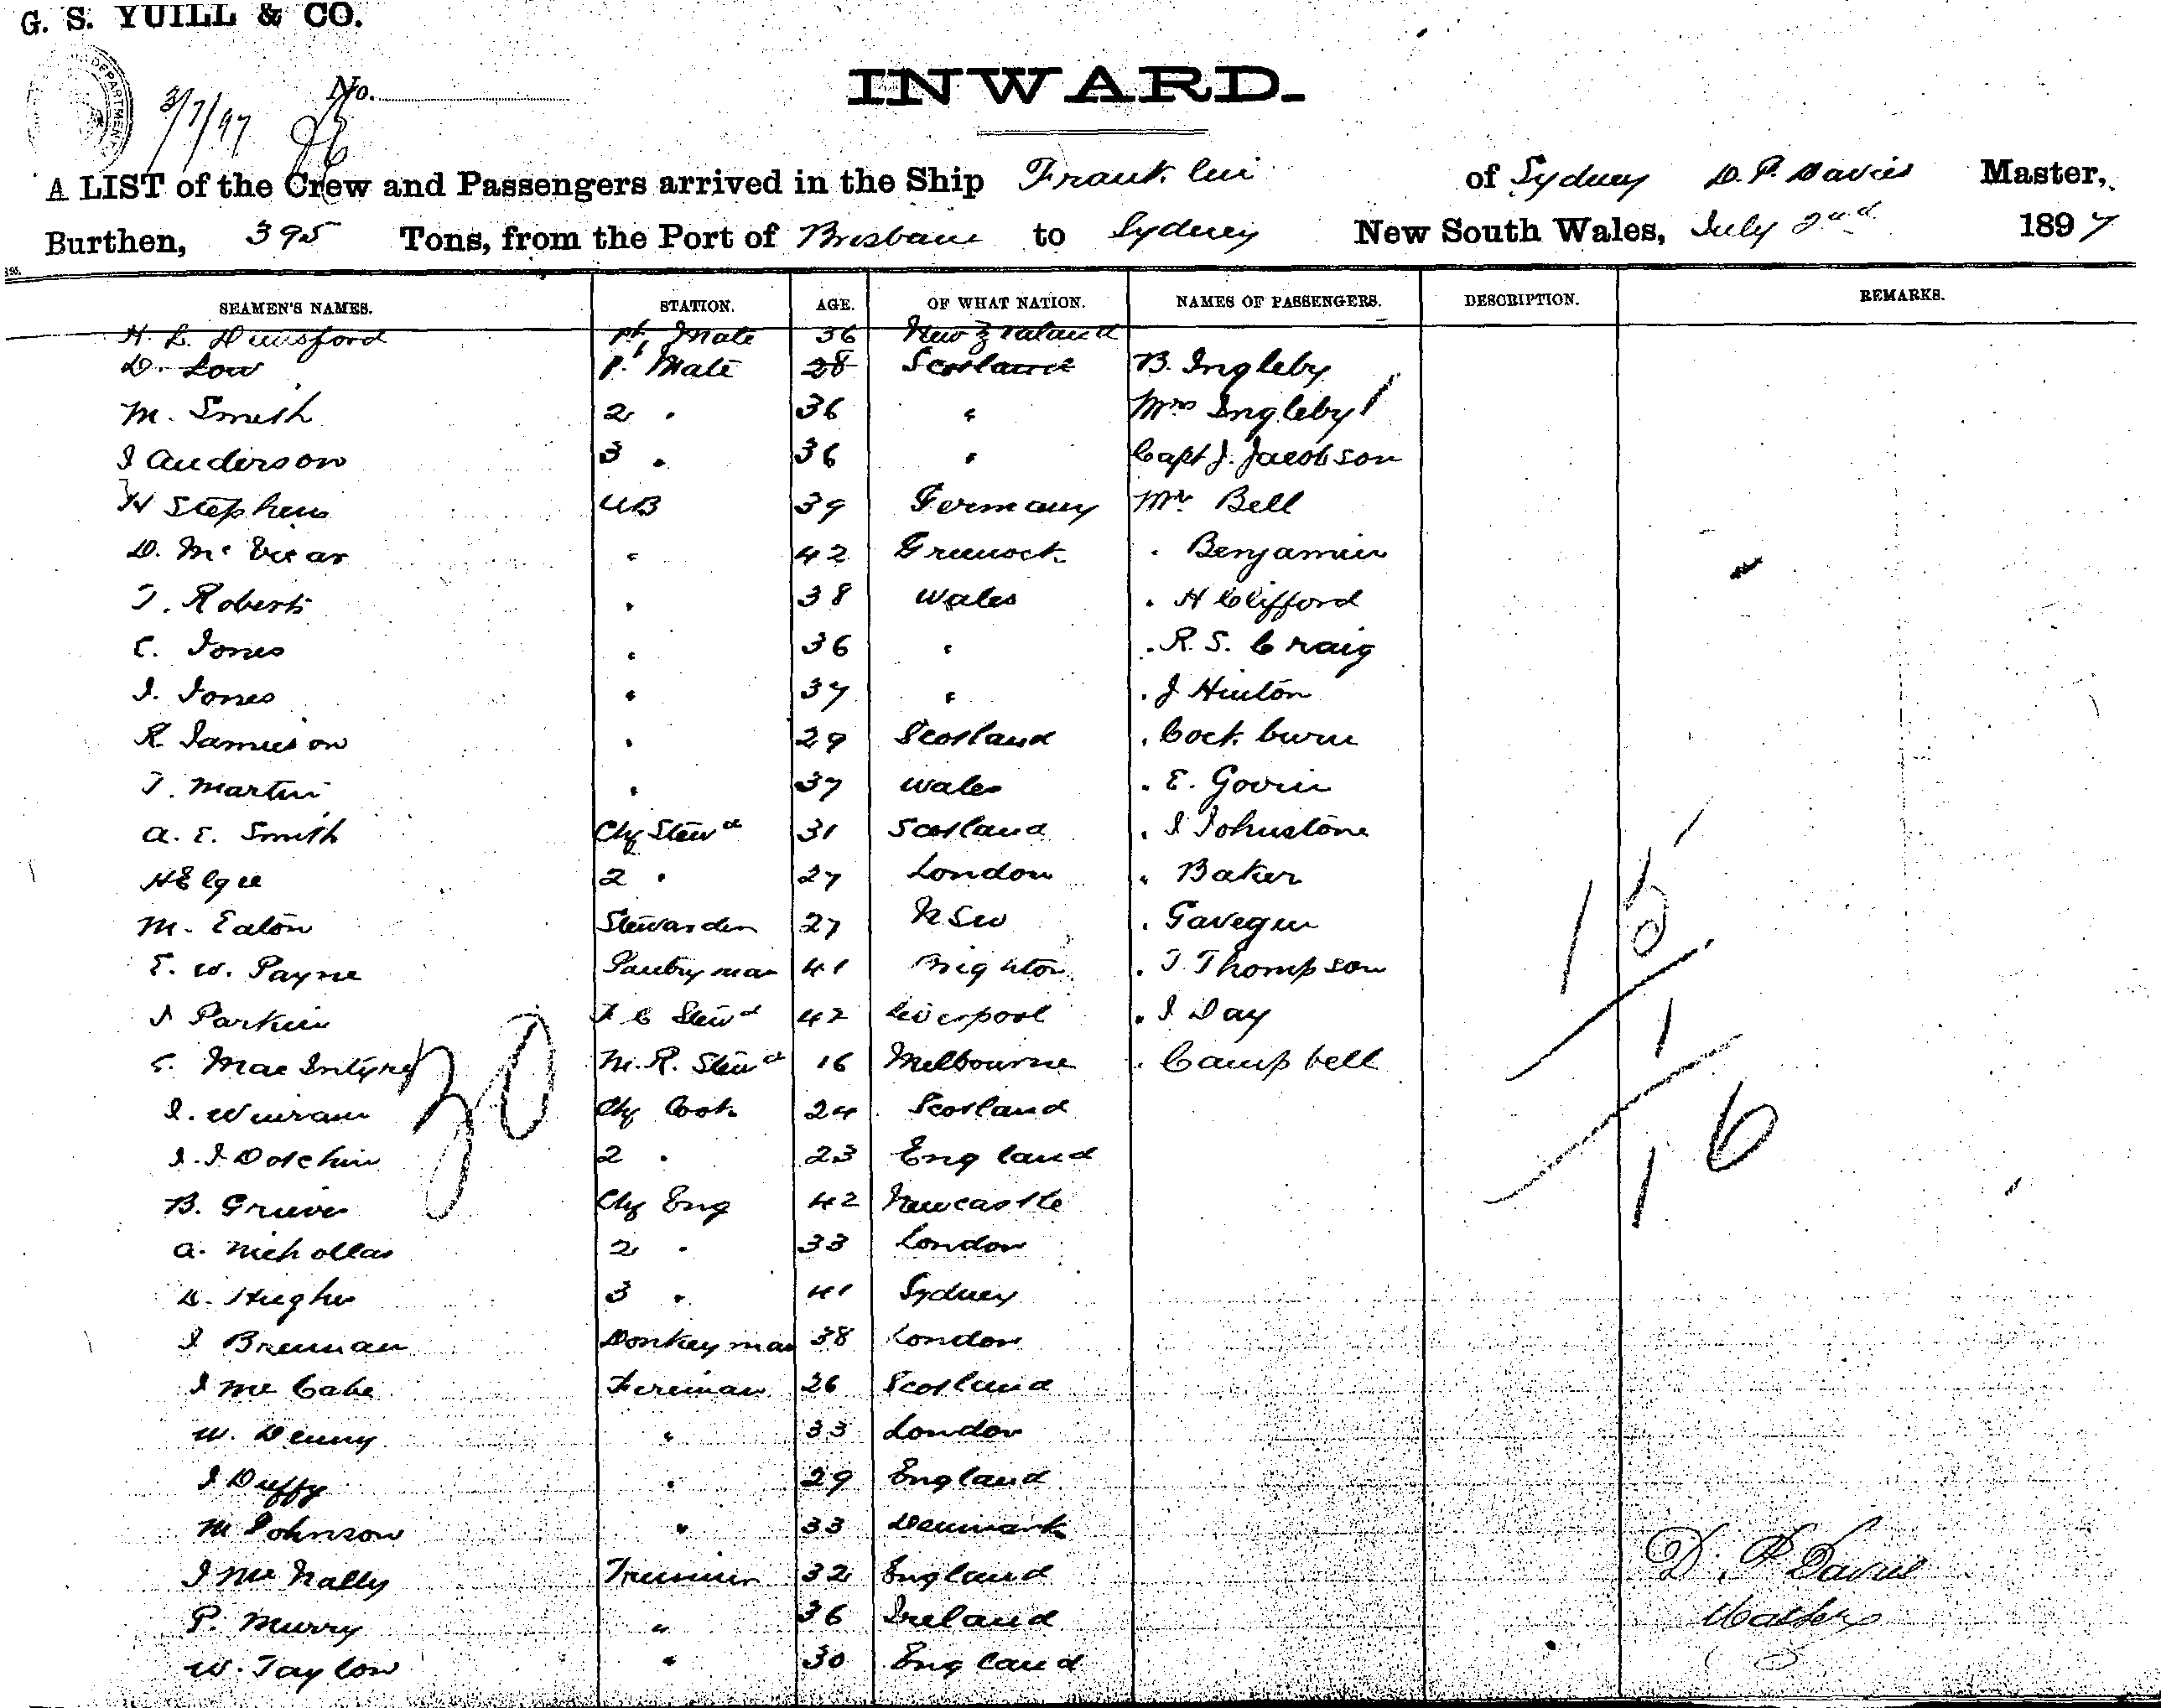 G. S. YUILL & CO.
DEPARTMENT
3/7/97
No.
INWARD.
A LIST of the Crew and Passengers arrived in the Ship Franklin of Sydney D. P. Davies Master,
Burthen, 395 Tons, from the Port of Brisbane to Sydney New South Wales, July 2nd 1897
SEAMEN'S NAMES. STATION. AGE. OF WHAT NATION. NAMES OF PASSENGERS. DESCRIPTION. REMARKS.
H. L. Dunsford 1st Mate 36 New Zealand
D. Low 1st Mate 28 Scotland B. Ingleby
M. Smith 2 " 36 " Mrs Ingleby 1
J Anderson 3 " 36 " Capt J. Jacobson
H Stephens AB 39 Germany Mr Bell
D. McVicar " 42 Greenock " Benjamin
T. Roberts " 38 Wales " H Clifford
C. Jones " 36 " " R. S. Craig
J. Jones " 37 " " J Hinton
R. Jamieson " 29 Scotland " Cockburn
T. Martin " 37 Wales " E. Govin
A. E. Smith Chf Stewd 31 Scotland " J Johnstone
H Elgee 2 " 27 London " Baker
M. Eaton Stewardess 27 NSW "
E. W. Payne Pantryman 41 Brighton " T. Thompson
J Parkin F C Stewd 42 Liverpool " J Day
C. MacIntyre M. R. Stewd 16 Melbourne " Campbell
J. Winram Chf Cook 24 Scotland
J. J Dotchin 2 " 23 England
B. Grieves Chf Eng 42 Newcastle
A. Nichollas 2 " 33 London
D. Hughes 3 " 41 Sydney
J Brennan Donkeyman 38 London
J McCabe Fireman 26 Scotland
W. Denny " 33 London
J Duffy " 29 England
M Johnson " 33 Denmark
J McNally Trimmer 32 England
P. Murry " 36 Ireland
W. Taylor " 30 England
30
15
1
16
D. P. Davies
Master